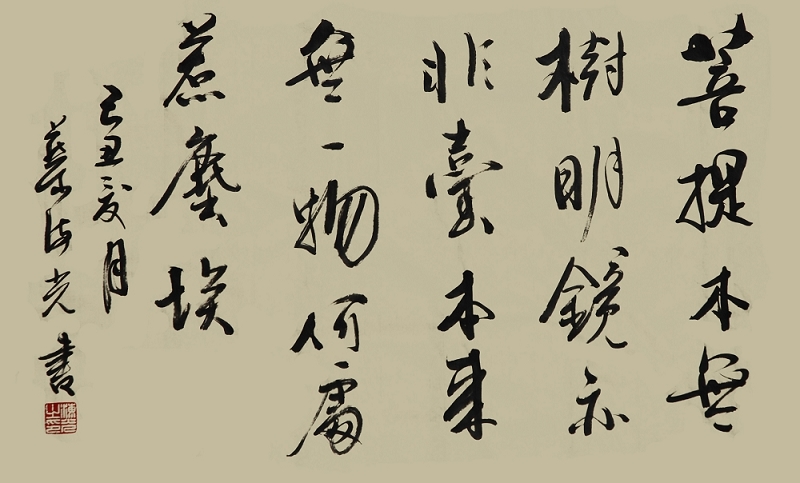 菩提本無
樹明鏡亦
非臺本来
無一物何處
惹塵埃
己丑夏月
海光書